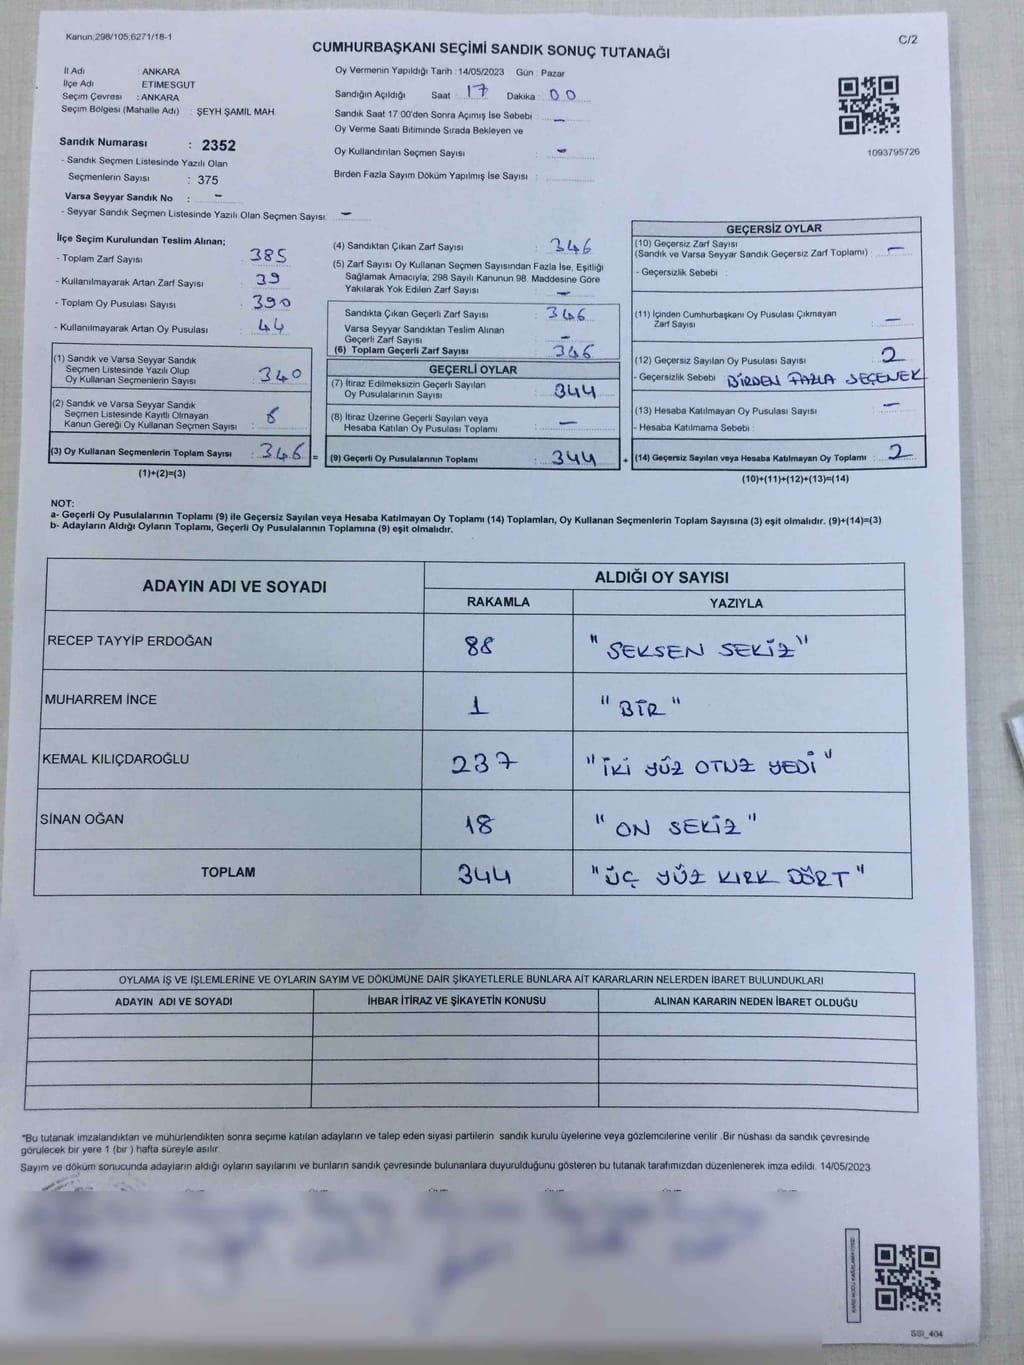 Kanun 298/105,6271/18-1
C/2
CUMHURBAŞKANI SEÇİMİ SANDIK SONUÇ TUTANAĞI
İl Adı : ANKARA
İlçe Adı ETİMESGUT
Seçim Çevresi : ANKARA
Seçim Bölgesi (Mahalle Adı) : ŞEYH ŞAMİL MAH.
Sandık Numarası : 2352
- Sandık Seçmen Listesinde Yazılı Olan
Seçmenlerin Sayısı : 375
Varsa Seyyar Sandık No : -
- Seyyar Sandık Seçmen Listesinde Yazılı Olan Seçmen Sayısı: -
Oy Vermenin Yapıldığı Tarih : 14/05/2023 Gün : Pazar
Sandığın Açıldığı Saat : 17 Dakika : 00
Sandık Saat 17:00'den Sonra Açımış İse Sebebi : -
Oy Verme Saati Bitiminde Sırada Bekleyen ve
Oy Kullandırılan Seçmen Sayısı : -
Birden Fazla Sayım Döküm Yapılmış İse Sayısı :
1093795726
İlçe Seçim Kurulundan Teslim Alınan;
- Toplam Zarf Sayısı : 385
- Kullanılmayarak Artan Zarf Sayısı : 39
- Toplam Oy Pusulası Sayısı : 390
- Kullanılmayarak Artan Oy Pusulası : 44
(1) Sandık ve Varsa Seyyar Sandık
Seçmen Listesinde Yazılı Olup
Oy Kullanan Seçmenlerin Sayısı : 340
(2) Sandık ve Varsa Seyyar Sandık
Seçmen Listesinde Kayıtlı Olmayan
Kanun Gereği Oy Kullanan Seçmen Sayısı : 6
(3) Oy Kullanan Seçmenlerin Toplam Sayısı : 346 =
(1)+(2)=(3)
(4) Sandıktan Çıkan Zarf Sayısı : 346
(5) Zarf Sayısı Oy Kullanan Seçmen Sayısından Fazla İse, Eşitliği
Sağlamak Amacıyla; 298 Sayılı Kanunun 98. Maddesine Göre
Yakılarak Yok Edilen Zarf Sayısı : -
Sandıkta Çıkan Geçerli Zarf Sayısı : 346
Varsa Seyyar Sandıktan Teslim Alınan
Geçerli Zarf Sayısı : -
(6) Toplam Geçerli Zarf Sayısı : 346
GEÇERLİ OYLAR
(7) İtiraz Edilmeksizin Geçerli Sayılan
Oy Pusulalarının Sayısı : 344
(8) İtiraz Üzerine Geçerli Sayılan veya
Hesaba Katılan Oy Pusulası Toplamı : -
(9) Geçerli Oy Pusulalarının Toplamı : 344 +
GEÇERSİZ OYLAR
(10) Geçersiz Zarf Sayısı
(Sandık ve Varsa Seyyar Sandık Geçersiz Zarf Toplamı) : -
- Geçersizlik Sebebi :
(11) İçinden Cumhurbaşkanı Oy Pusulası Çıkmayan
Zarf Sayısı : -
(12) Geçersiz Sayılan Oy Pusulası Sayısı : 2
- Geçersizlik Sebebi : BİRDEN FAZLA SEÇENEK
(13) Hesaba Katılmayan Oy Pusulası Sayısı : -
- Hesaba Katılmama Sebebi :
(14) Geçersiz Sayılan veya Hesaba Katılmayan Oy Toplamı : 2
(10)+(11)+(12)+(13)=(14)
NOT:
a- Geçerli Oy Pusulalarının Toplamı (9) ile Geçersiz Sayılan veya Hesaba Katılmayan Oy Toplamı (14) Toplamları, Oy Kullanan Seçmenlerin Toplam Sayısına (3) eşit olmalıdır. (9)+(14)=(3)
b- Adayların Aldığı Oyların Toplamı, Geçerli Oy Pusulalarının Toplamına (9) eşit olmalıdır.
ADAYIN ADI VE SOYADI
ALDIĞI OY SAYISI
RAKAMLA YAZIYLA
RECEP TAYYİP ERDOĞAN 88 "SEKSEN SEKİZ"
MUHARREM İNCE 1 "BİR"
KEMAL KILIÇDAROĞLU 237 "İKİ YÜZ OTUZ YEDİ"
SİNAN OĞAN 18 "ON SEKİZ"
TOPLAM 344 "ÜÇ YÜZ KIRK DÖRT"
OYLAMA İŞ VE İŞLEMLERİNE VE OYLARIN SAYIM VE DÖKÜMÜNE DAİR ŞİKAYETLERLE BUNLARA AİT KARARLARIN NELERDEN İBARET BULUNDUKLARI
ADAYIN ADI VE SOYADI İHBAR İTİRAZ VE ŞİKAYETİN KONUSU ALINAN KARARIN NEDEN İBARET OLDUĞU
"Bu tutanak imzalandıktan ve mühürlendikten sonra seçime katılan adayların ve talep eden siyasi partilerin sandık kurulu üyelerine veya gözlemcilerine verilir .Bir nüshası da sandık çevresinde
görülecek bir yere 1 (bir ) hafta süreyle asılır.
Sayım ve döküm sonucunda adayların aldığı oyların sayılarını ve bunların sandık çevresinde bulunanlara duyurulduğunu gösteren bu tutanak tarafımızdan düzenlenerek imza edildi. 14/05/2023
SSİ_404